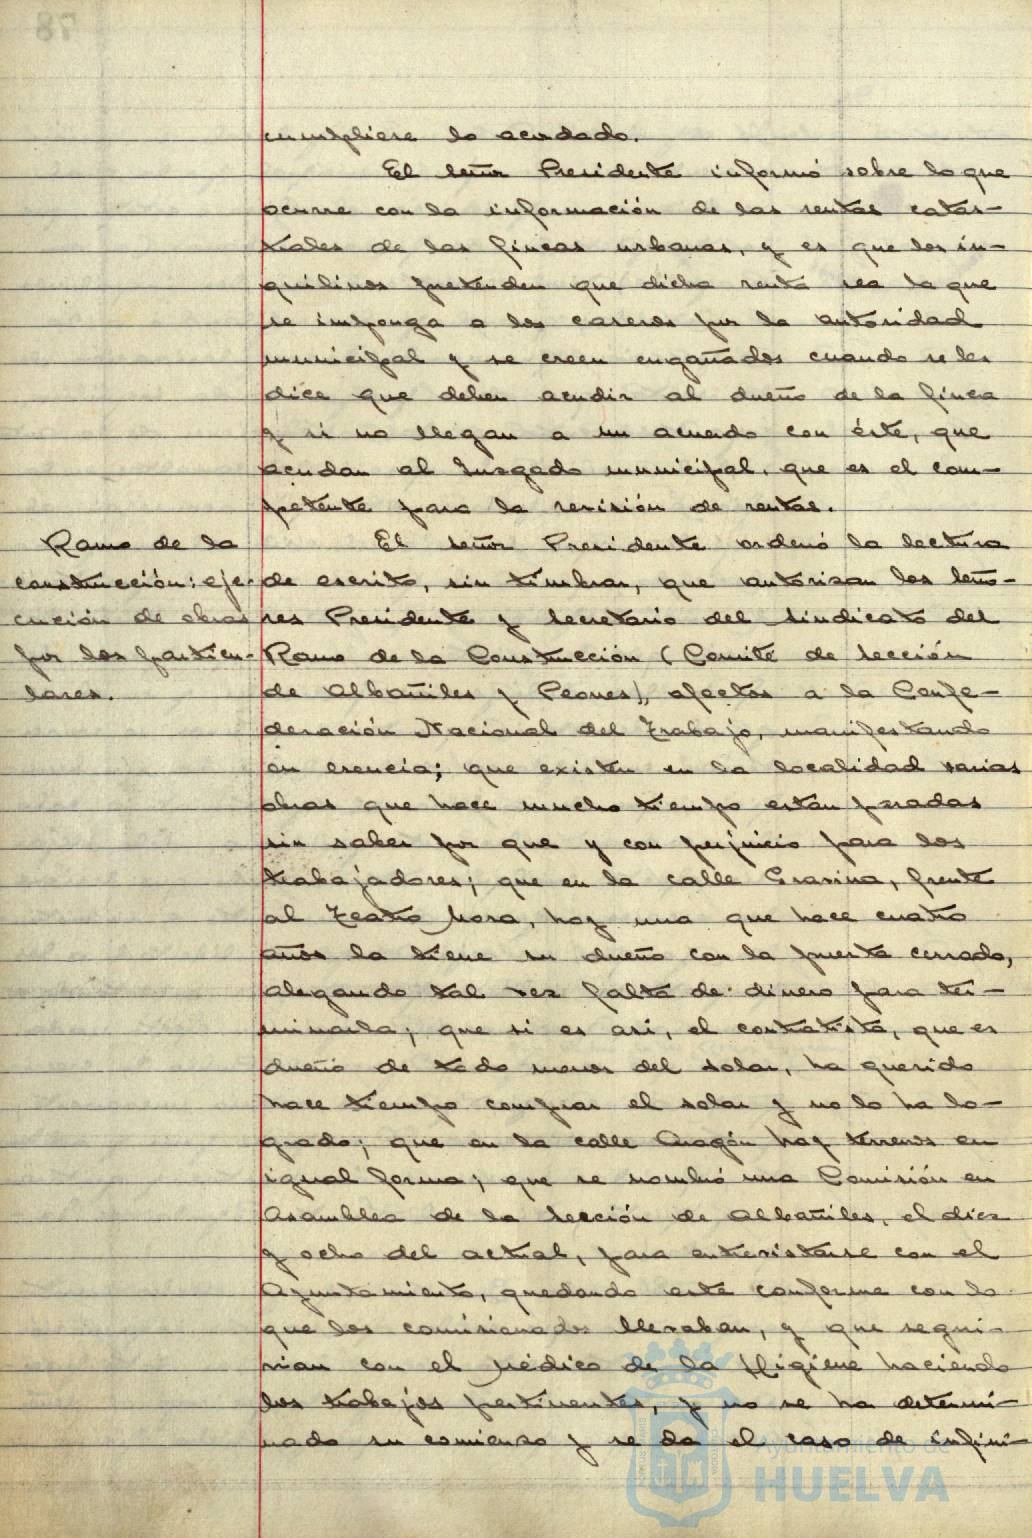 cumpliese lo acordado.
El señor Presidente informó sobre lo que
ocurre con la información de las rentas catas-
trales de las fincas urbanas, y es que los in-
quilinos pretenden que dicha renta sea la que
se imponga a los caseros por la autoridad
municipal y se creen engañados cuando se les
dice que deben acudir al dueño de la finca
y si no llegan a un acuerdo con éste, que
acudan al Juzgado municipal, que es el com-
petente para la revisión de rentas.
Ramo de la
construcción: eje-
cución de obras
por los particu-
lares.
El señor Presidente ordenó la lectura
de escrito, sin timbrar, que autorizan los seño-
res Presidente y Secretario del Sindicato del
Ramo de la Construcción (Comité de Sección
de Albañiles y Peones), afectos a la Confe-
deración Nacional del Trabajo, manifestando
en esencia; que existen en la localidad varias
obras que hace mucho tiempo están paradas
sin saber por que y con perjuicio para los
trabajadores; que en la calle Gravina, frente
al Teatro Mora, hay una que hace cuatro
años la tiene su dueño con la puerta cerrada,
alegando tal vez falta de dinero para ter-
minarla; que si es así, el contratista, que es
dueño de todo menos del solar, ha querido
hace tiempo comprar el solar y no lo ha lo-
grado; que en la calle Aragón hay terrenos en
igual forma; que se nombró una Comisión en
Asamblea de la Sección de Albañiles, el diez
y ocho del actual, para entrevistarse con el
Ayuntamiento, quedando este conforme con lo
que los comisionados llevaban, y que segui-
rian con el Médico de la Higiene haciendo
los trabajos pertinentes, y no se ha determi-
nado su comienzo y se da el caso de infini-
Ayuntamiento de
HUELVA